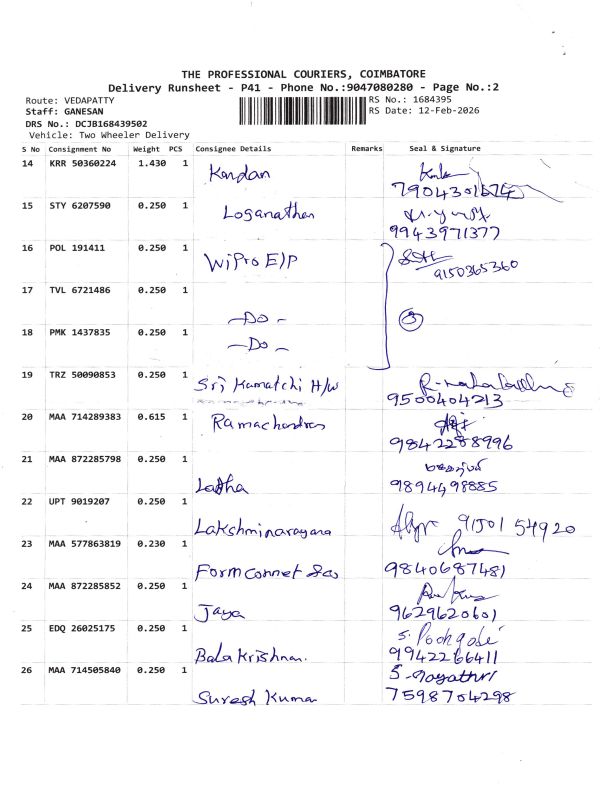 THE PROFESSIONAL COURIERS, COIMBATORE
Delivery Runsheet - P41 - Phone No.:9047080280 - Page No.:2
Route: VEDAPATTY
RS No.: 1684395
Staff: GANESAN
RS Date: 12-Feb-2026
DRS No.: DCJB168439502
Vehicle: Two Wheeler Delivery
S No Consignment No Weight PCS Consignee Details Remarks Seal & Signature
14 KRR 50360224 1.430 1 Kandan
7904301674
15 STY 6207590 0.250 1 Loganathan
9943971377
16 POL 191411 0.250 1 WiPro E/P
9150365360
17 TVL 6721486 0.250 1
-Do- 3
18 PMK 1437835 0.250 1
-Do-
19 TRZ 50090853 0.250 1 Sri Kamatchi H/W
9500404213
20 MAA 714289383 0.615 1 Ramachandran
9842288996
21 MAA 872285798 0.250 1
Latha 9894498885
22 UPT 9019207 0.250 1
Lakshminarayana 91501 54920
23 MAA 577863819 0.230 1
Formconnet Sas 9840687481
24 MAA 872285852 0.250 1
Jaya 9629620601
25 EDQ 26025175 0.250 1
Bala Krishnan. 9942266411
26 MAA 714505840 0.250 1 S. Gayathri
Suresh Kumar 7598704298